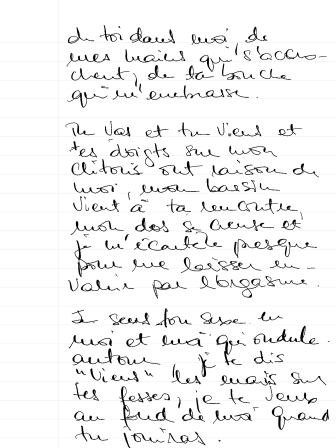 de toi dans moi, de
mes mains qui s'accro-
chent, de ta bouche
qui m'embrasse.
Tu vas et tu viens et
tes doigts sur mon
clitoris ont raison de
moi, mon bassin
vient à ta rencontre,
mon dos se creuse et
je m'écartèle presque
pour me laisser en-
vahir par l'orgasme.
Je sens ton sexe en
moi et moi qui ondule
autour, je te dis
"viens" les mains sur
tes fesses, je te veux
au fond de moi quand
tu jouiras.